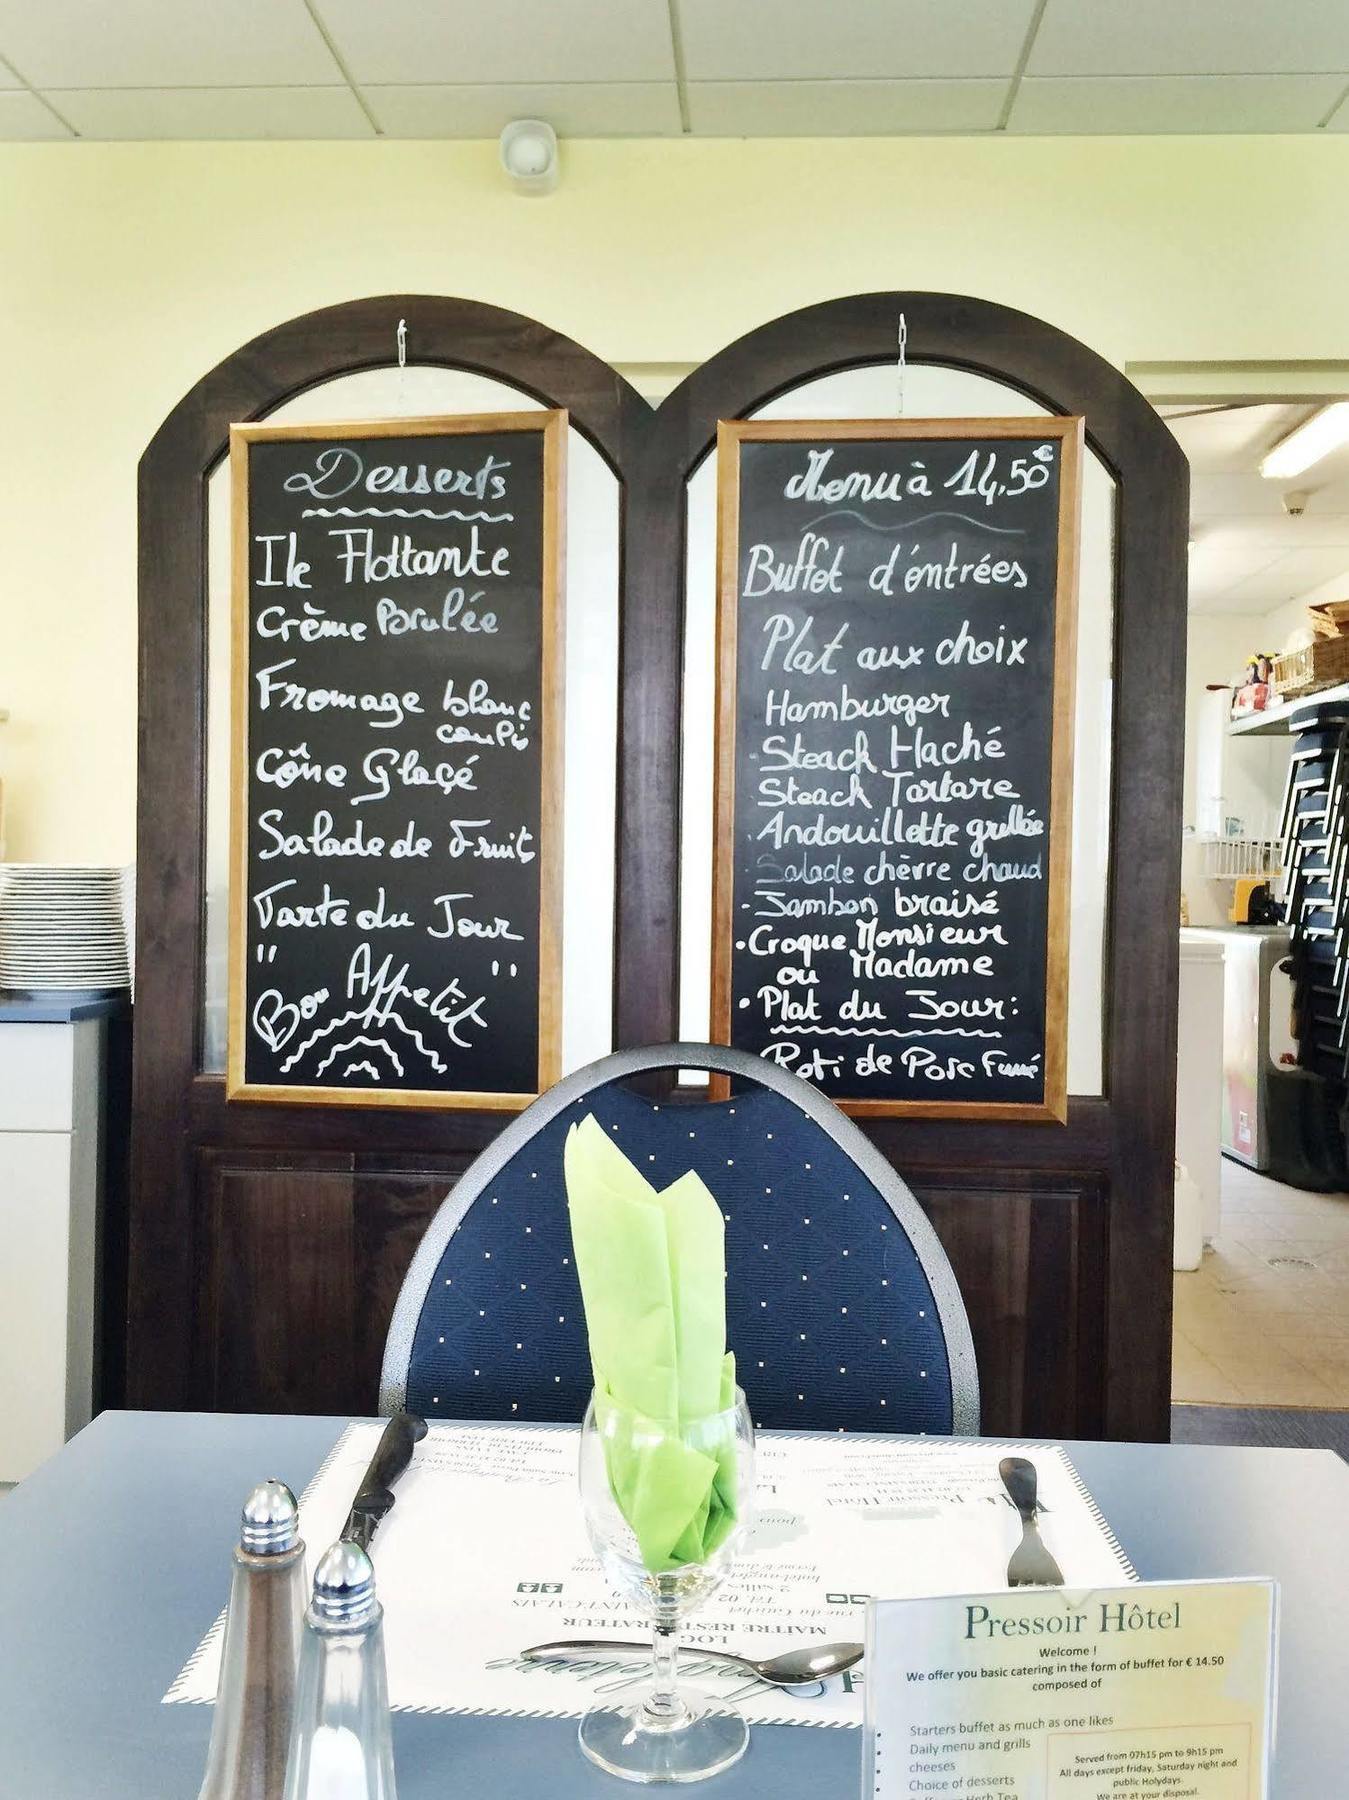 Desserts
Ile Flottante
Crème Brulée
Fromage blanc
coulis
Cône Glaçé
Salade de Fruits
Tarte du Jour
" "
Bon Appetit
Menu à 14,50€
Buffet d'éntrées
Plat aux choix
Hamburger
Steack Haché
Steack Tartare
Andouillette grillée
Salade chèvre chaud
- Jambon braisé
• Croque Monsieur
ou Madame
• Plat du Jour:
Roti de Porc Fumé
MAITRE RESTAURATEUR
Pressoir Hôtel
Welcome !
We offer you basic catering in the form of buffet for € 14.50
composed of
Starters buffet as much as one likes
Daily menu and grills
cheeses
Choice of desserts
Herb Tea
Served from 07h15 pm to 9h15 pm
All days except friday, Saturday night and
public Holydays.
We are at your disposal.